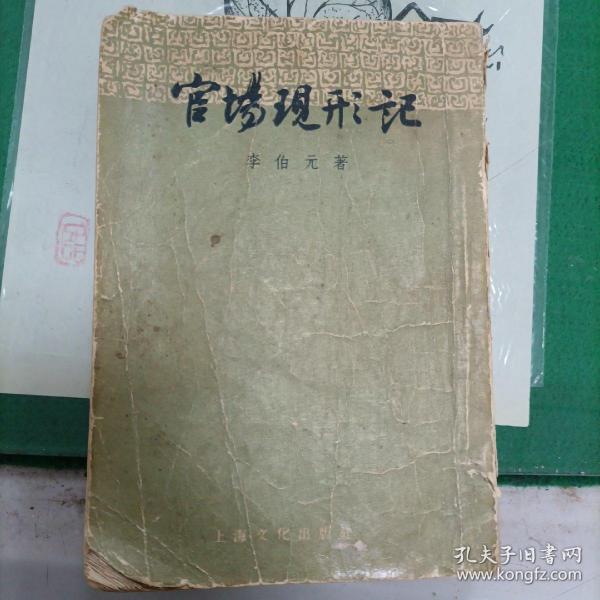 官場現形記
李伯元著
上海文化出版社
孔夫子旧书网
www.kongfz.com